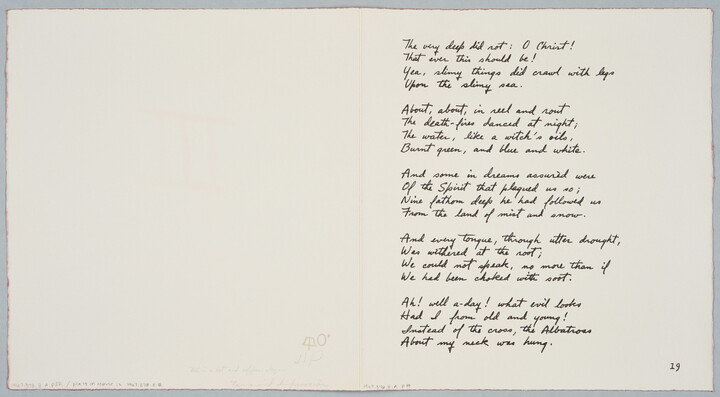 The very deep did rot: O Christ!
That ever this should be!
Yea, slimy things did crawl with legs
Upon the slimy sea.
About, about, in reel and rout
The death-fires danced at night;
The water, like a witch's oils,
Burnt green, and blue and white.
And some in dreams assured were
Of the Spirit that plagued us so;
Nine fathom deep he had followed us
From the land of mist and snow.
And every tongue, through utter drought,
Was withered at the root;
We could not speak, no more than if
We had been choked with soot.
Ah! well a-day! what evil looks
Had I from old and young!
Instead of the cross, the Albatross
About my neck was hung.
19